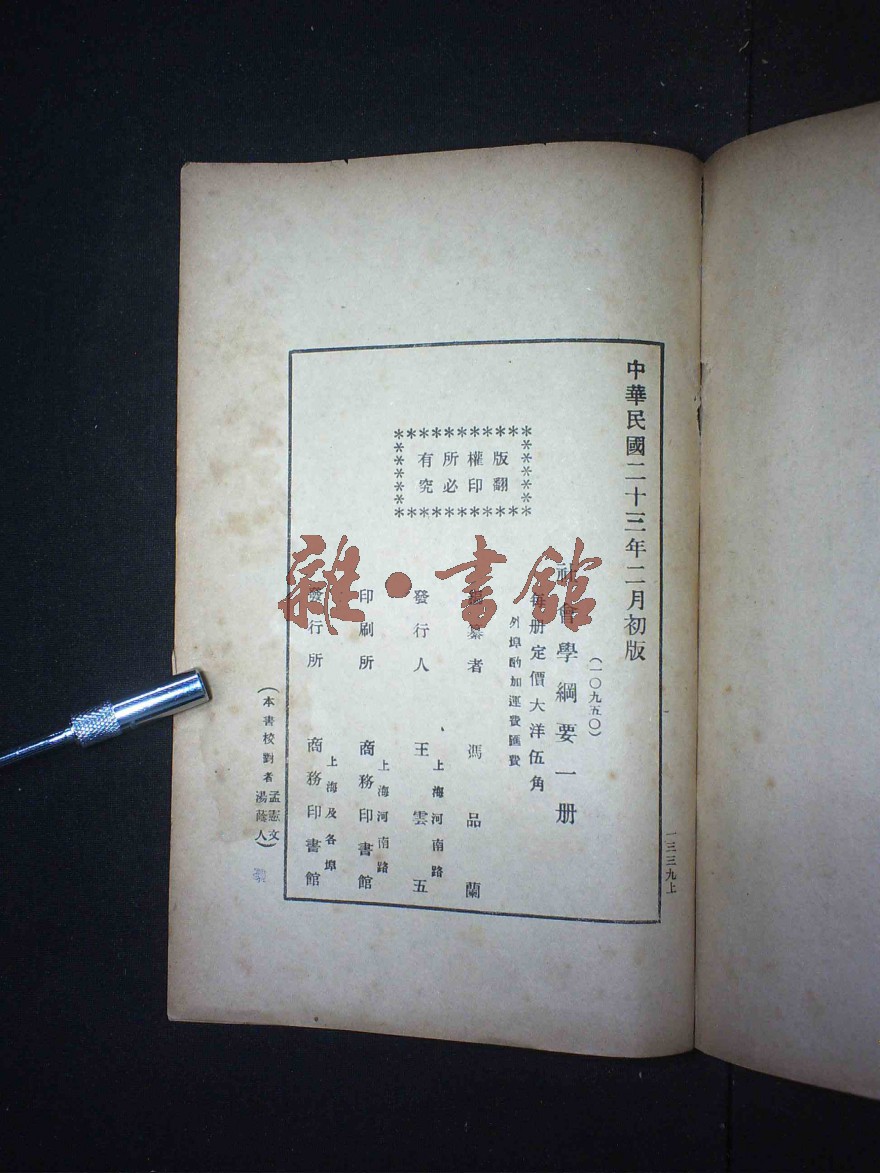 中華民國二十三年二月初版
(一〇九五〇)
社會學綱要一册
每册定價大洋伍角
外埠酌加運費匯費
版權所有
翻印必究
編纂者 馮品蘭
發行人 王雲五
上海河南路
印刷所 商務印書館
上海河南路
發行所 商務印書館
上海及各埠
(本書校對者 孟憲文 湯蔭人)
一三三九上
雜·書館